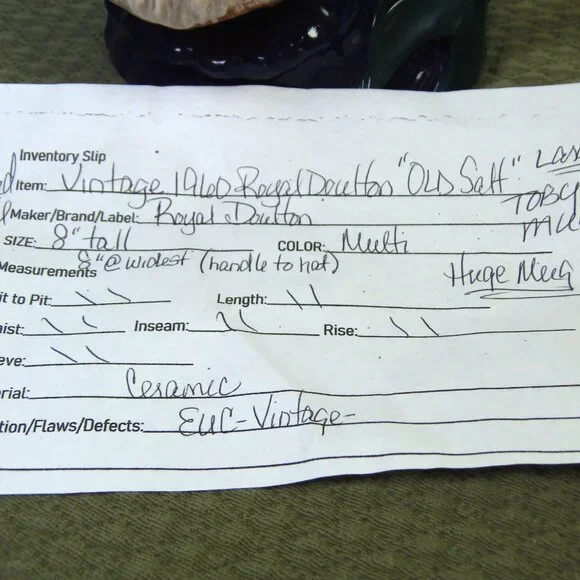 Inventory Slip
Item: Vintage 1960 Royal Doulton "Old Salt" Large
TOBY
Maker/Brand/Label: Royal Doulton
SIZE: 8" tall COLOR: Multi
Measurements 8" @ widest (handle to hat) Huge Mug
it to Pit: \ \ Length: \ \
aist: \ \ Inseam: \ \ Rise: \ \
eve: \ \
erial: Ceramic
tion/Flaws/Defects: EUC-Vintage-